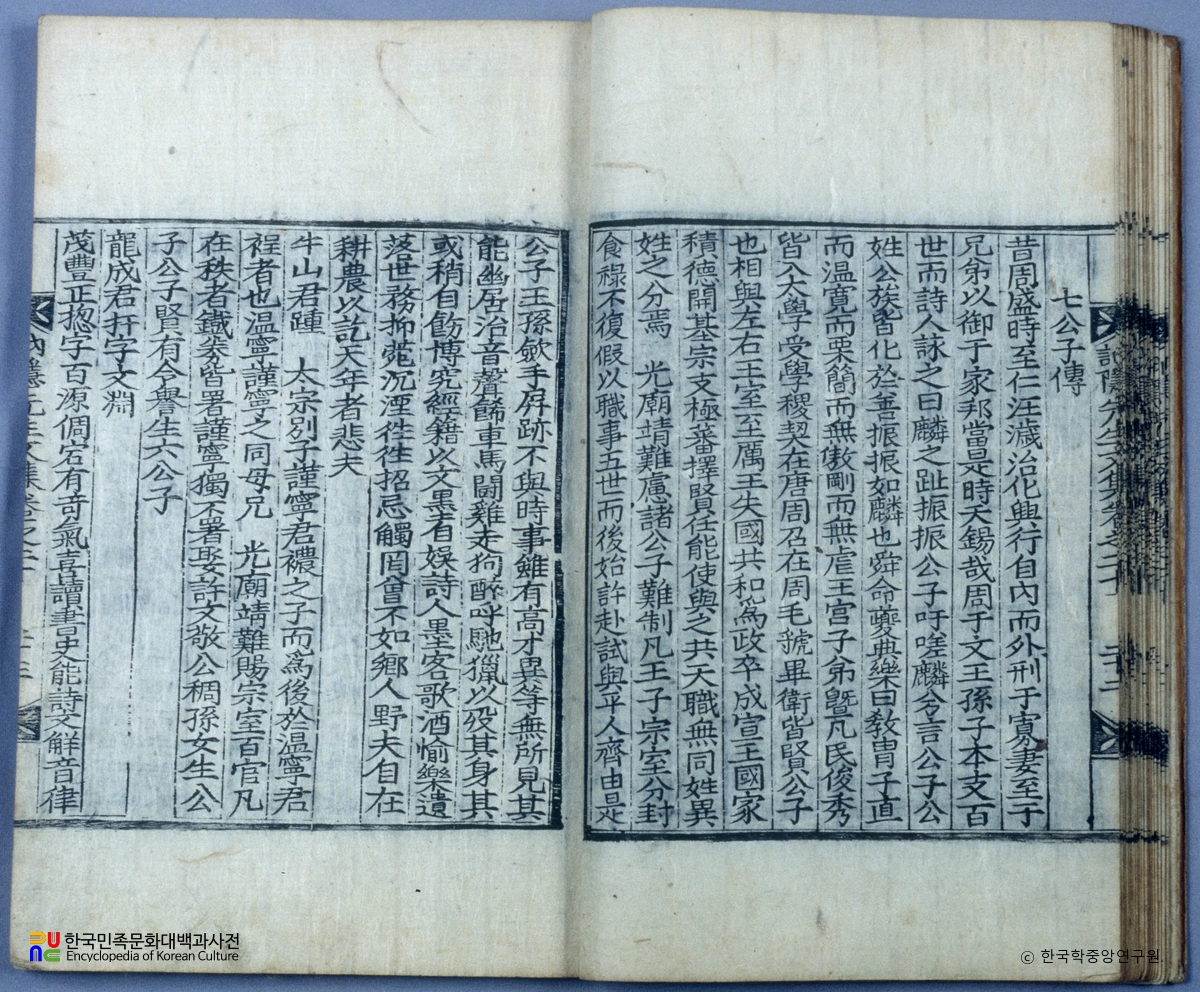 七公子傳
昔周盛時至仁汪濊治化興行自內而外刑于寡妻至于
兄弟以御于家邦當是時天錫哉周于文王孫子本支百
世而詩人詠之曰麟之趾振振公子吁嗟麟兮言公子公
姓公族皆化於善振振如麟也舜命夔典樂曰敎胄子直
而溫寬而栗簡而無傲剛而無虐王宮子弟曁凡民俊秀
皆入大學受學稷契在唐周召在周毛虢畢衛皆賢公子
也相與左右王室至厲王失國共和爲政卒成宣王國家
積德開基宗支極蕃擇賢任能使與之共天職無同姓異
姓之分焉 光廟靖難慮諸公子難制凡王子宗室分封
食祿不復假以職事五世而後始許赴試與平人齊由是
公子王孫斂手屛跡不與時事雖有高才異等無所見其
能幽居治音聲飾車馬鬪雞走狗醉呼馳獵以沒其身其
或稍自飭博究經籍以文墨自娛詩人墨客歌酒愉樂遺
落世務抑菀沉湮往往招忌觸罔曾不如鄕人野夫自在
耕農以訖天年者悲夫
牛山君踵 太宗別子謹寧君襛之子而爲後於溫寧君
裎者也溫寧謹寧之同母兄 光廟靖難賜宗室百官凡
在秩者鐵券皆署謹寧獨不署娶許文敬公稠孫女生公
子公子賢有令譽生六公子
龍成君扞字文淵
茂豐正摠字百源倜宕有奇氣喜讀書史能詩文解音律
한국민족문화대백과사전
Encyclopedia of Korean Culture
ⓒ 한국학중앙연구원.